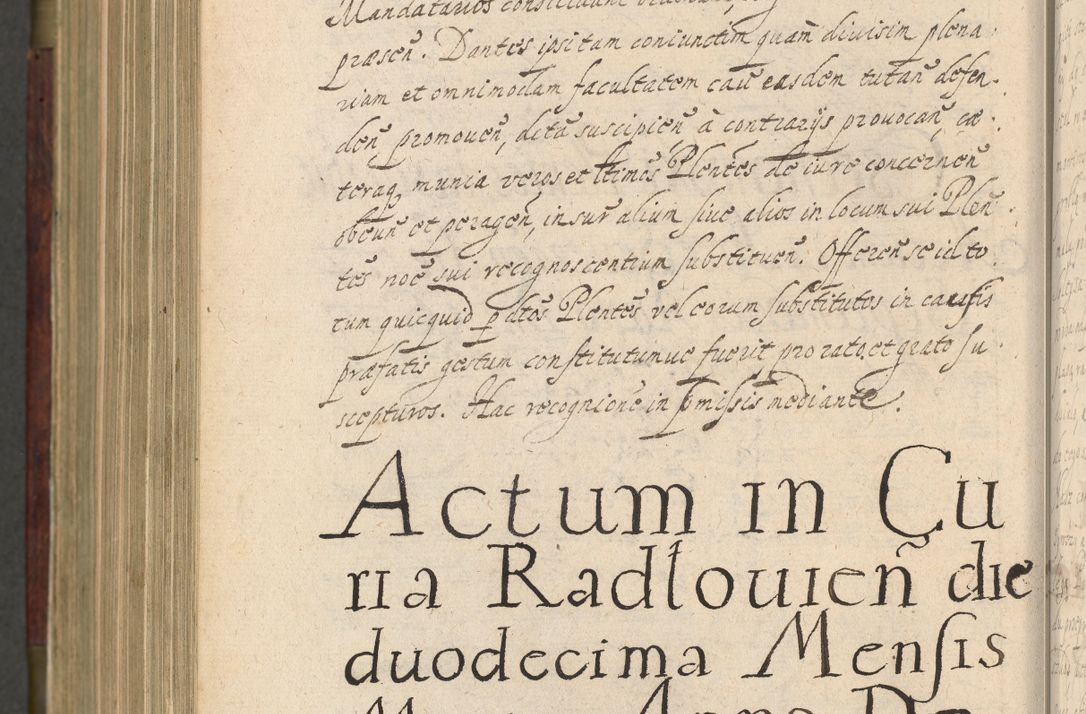 Mandatarios
præsen̄. Dantes ipsi tam coniunctim quam̄ diuisim plena
riam et omnimodam facultatem caūs easdem tutan̄ defen.
den̄ promouen̄, deta suscipien̄ à contrarijs prouocan̄, cæ.
teraq munia veros et ltimos Plentes de iure concernen̄
obeun̄ et peragen̄, in sur̄ alium siue alios in locum sui Plen̄
tes noē sui recognoscentium substituen̄. Offeren̄ se id to
tum quicquid p dtos Plentes vel eorum substitutos in causis
præfatis gestum constitutumue fuerit pro rato, et grato su
scepturos. Hac recognione in pmissis mediante.
Actum in Cu
ria Radłouien̄ die
duodecima Mensis
Anno Do